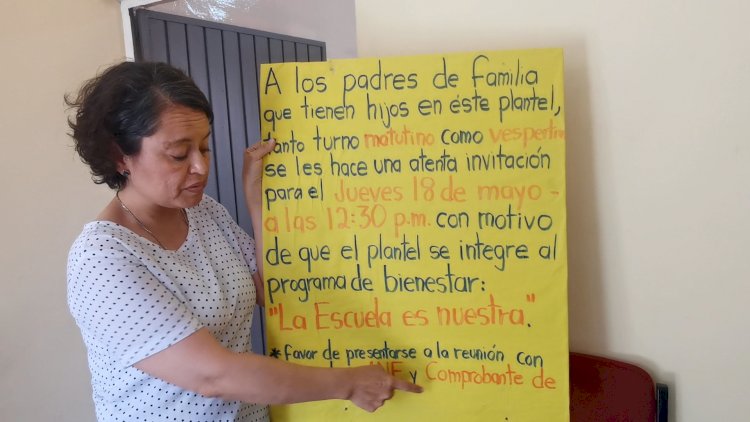 A los padres de familia
que tienen hijos en éste plantel,
tanto turno matutino como vespertin
se les hace una atenta invitación
para el Jueves 18 de mayo -
a las 12:30 p.m. con motivo
de que el plantel se integre al
programa de bienestar:
"La Escuela es nuestra".
* favor de presentarse a la reunión con
INE y Comprobante de